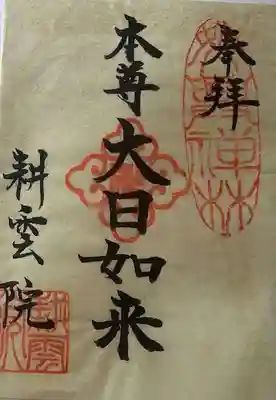 奉拝
本尊 大日如来
耕雲院